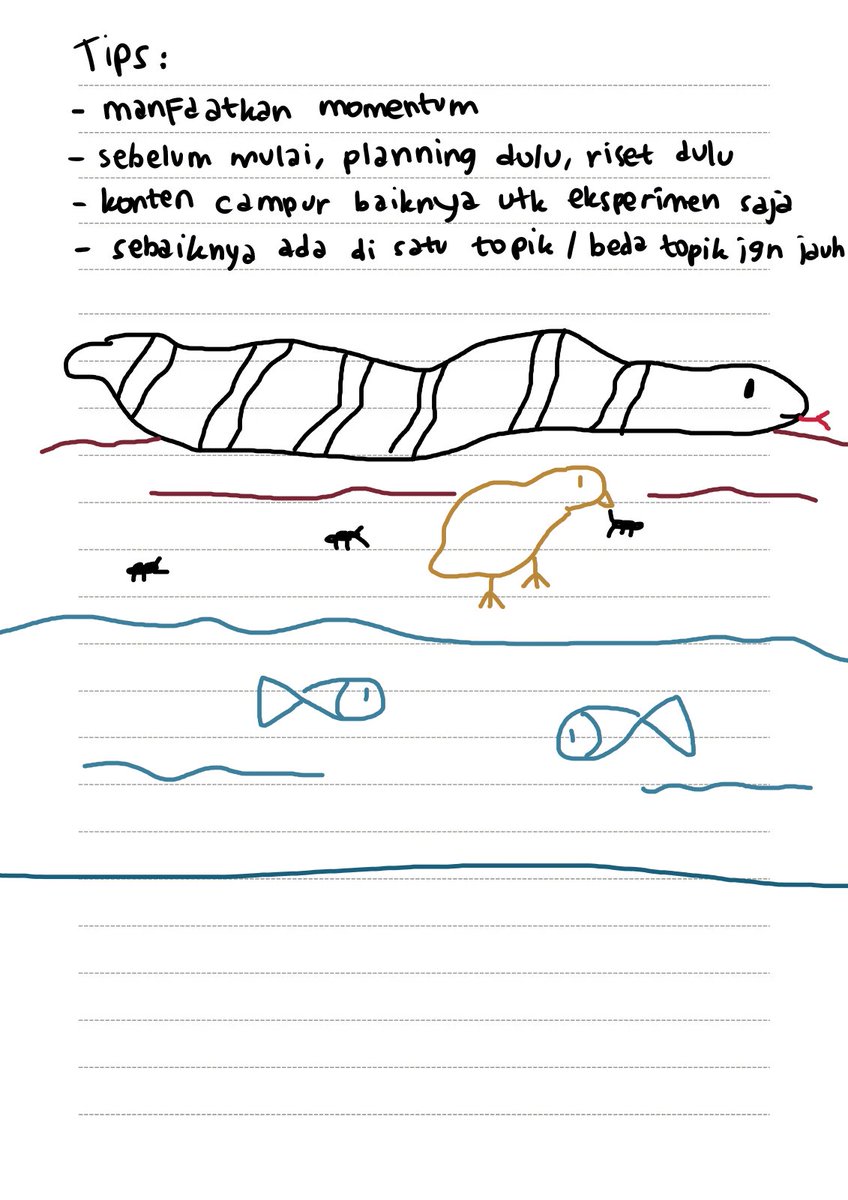 Tips :
- manfaatkan momentum
- sebelum mulai, planning dulu, riset dulu
- konten campur baiknya utk eksperimen saja
- sebaiknya ada di satu topik / beda topik jgn jauh